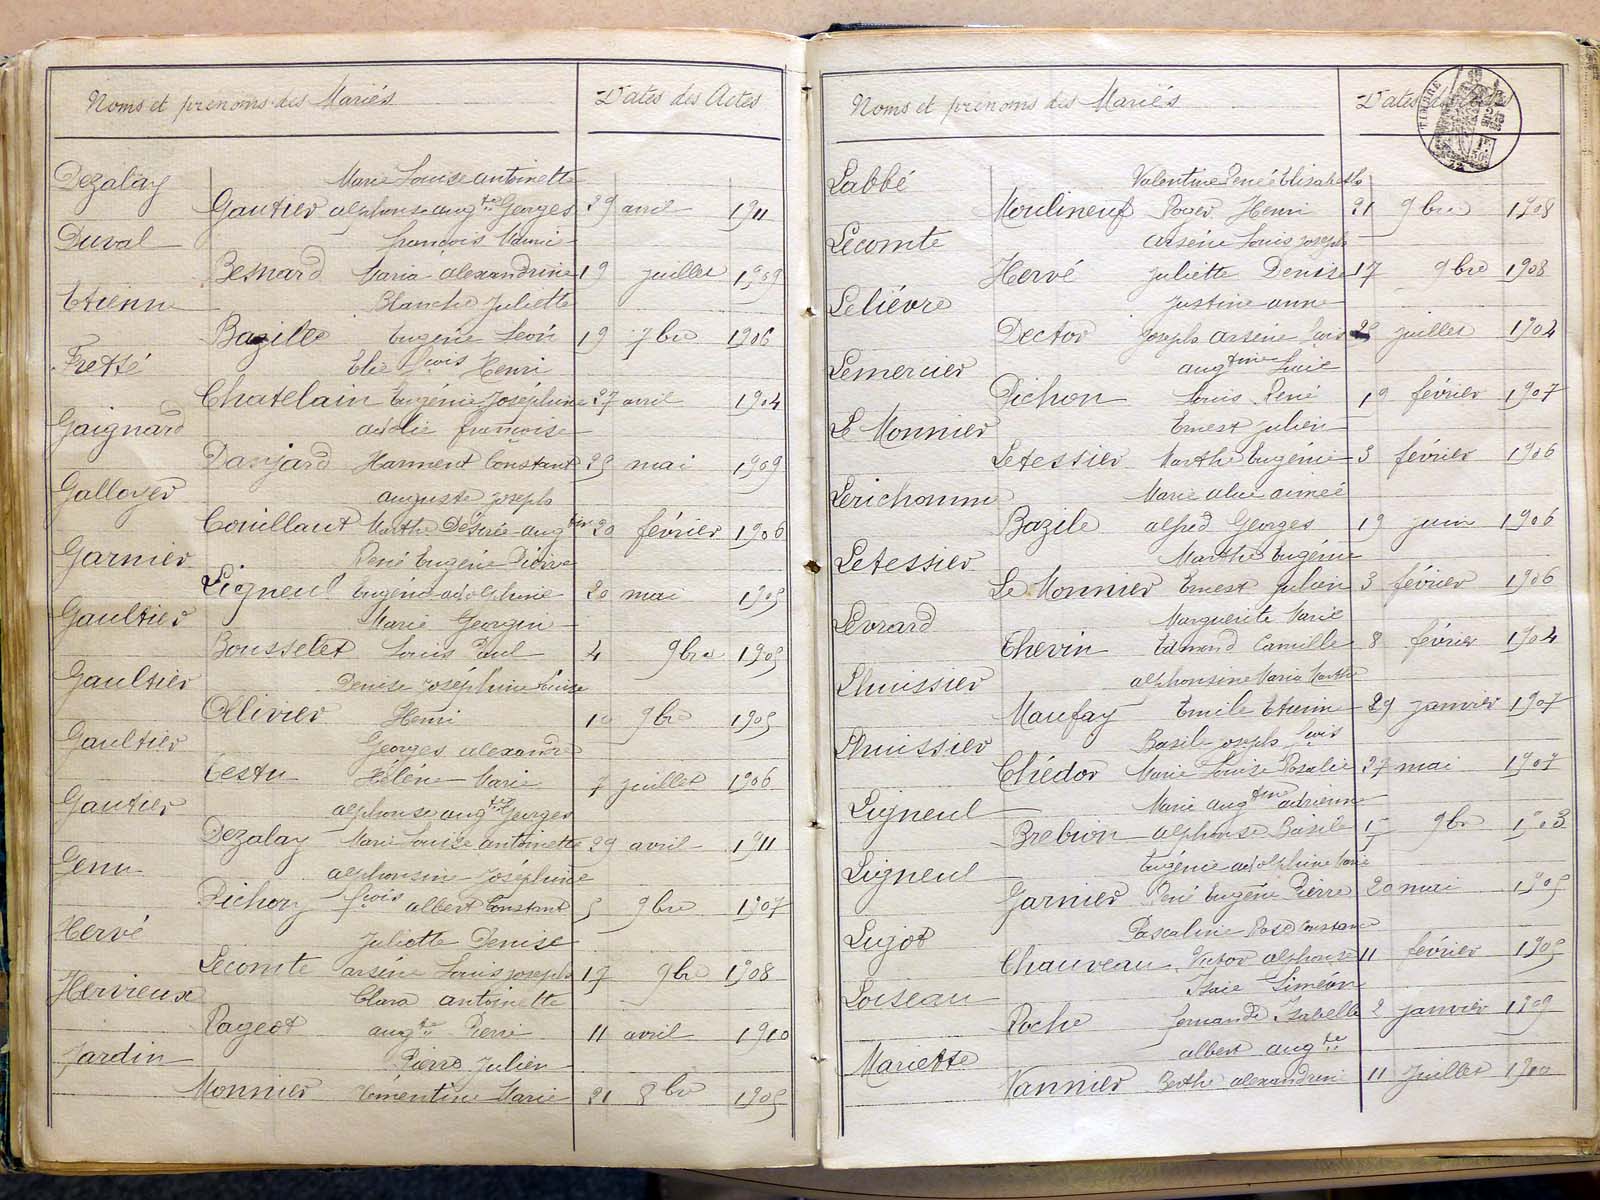 Noms et prénoms des Mariés Dates des Actes
Dezalay Marie Louise antoinette
Gautier alphonse augte Georges 29 avril 1911
Duval françois Marie
Besnard Maria alexandrine 19 juillet 1909
Etienne Blanche Juliette
Bazille Eugène Léon 19 7bre 1906
Fretté Elie fçois Henri
Chatelain Eugénie Joséphine 27 avril 1904
Gaignard adolie françoise
Danjard Harment Constant 25 mai 1909
Galloyer auguste joseph
Couillaut Marthe Désirée augtine 20 février 1906
Garnier René Eugène Pierre
Ligneul Eugénie adolphine 20 mai 1905
Gaultier Marie Georgine
Bousselet Louis Paul 4 9bre 1905
Gaultier Denise Joséphine Louise
Ollivier Henri 10 9bre 1905
Gaultier Georges alexandre
Testu Hélène Marie 7 juillet 1906
Gautier alphonse augte Georges
Dezalay Marie Louise antoinette 29 avril 1911
Genu alphonsine Joséphine
Pichon fçois albert Constant 5 9bre 1907
Hervé Juliette Denise
Lecomte arsène Louis joseph 17 9bre 1908
Hervieux Clara antoinette
Pageot augte Pierre 11 avril 1910
Jardin Pierre Julien
Monnier Clémentine Marie 21 8bre 1905
Noms et prénoms des Mariés Dates
TIMBRE
Labbé Valentine Renée Elisabeth
Moulineuf Roger Henri 21 9bre 1908
Lecomte arsène Louis joseph
Hervé Juliette Denise 17 9bre 1908
Leliévre Justine anne
Dector Joseph arsène fçois 25 juillet 1904
Lemercier augtine Lucie
Pichon Louis René 19 février 1907
Le Monnier Ernest julien
Letessier Marthe Eugénie 3 février 1906
Lerichomme Marie alice aimée
Bazile alfred Georges 19 juin 1906
Letessier Marthe Eugénie
Le Monnier Ernest julien 3 février 1906
Levrard Marguerite Marie
Thevin Edmond Camille 8 février 1904
Lhuissier alphonsine Maria Marthe
Maufay Emile Etienne 29 janvier 1907
Lhuissier Basile joseph fçois
Chédor Marie Louise Rosalie 27 mai 1907
Ligneul Marie augtine adrienne
Brebion alphonse Basile 15 9bre 1903
Ligneul Eugénie adolphine Marie
Garnier René Eugène Pierre 20 mai 1905
Lujot Pascaline Rose Constance
Chauveau Victor alphonse 11 février 1905
Loiseau Isaie Siméon
Roche fernande Isabelle 2 janvier 1909
Mariette albert augte
Vannier Berthe alexandrine 11 Juillet